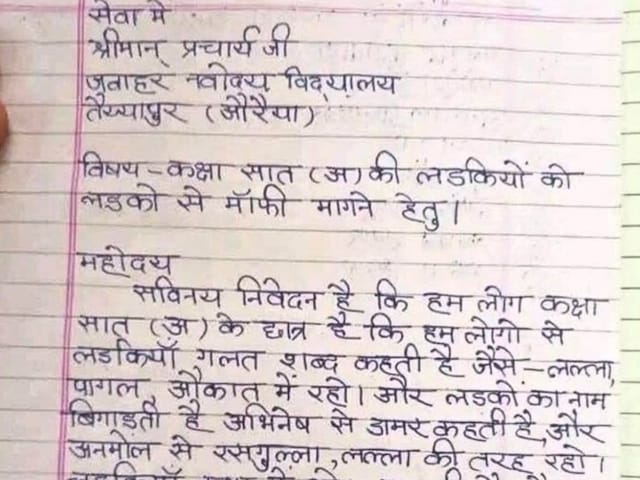 सेवा में
श्रीमान् प्रचार्य जी
जवाहर नवोदय विद्यालय
तैय्यापुर (औरैया)
विषय - कक्षा सात (अ) की लडकियों को
लडको से मॉफी मागने हेतु।
महोदय
सविनय निवेदन है कि हम लोग कक्षा
सात (अ) के छात्र है कि हम लोगो से
लडकियाँ गलत शब्द कहती है जैसे - लल्ला,
पागल औकात में रहो। और लडकों का नाम
बिगाडती है अभिनेष से डामर कहती है, और
अनमोल से रसगुल्ला, लल्ला की तरह रहो।
लडकियाँ